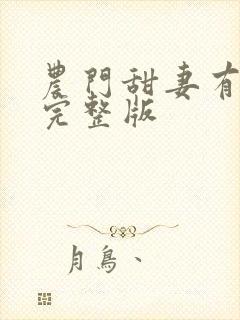 農門甜妻有
完整版
月鳥、